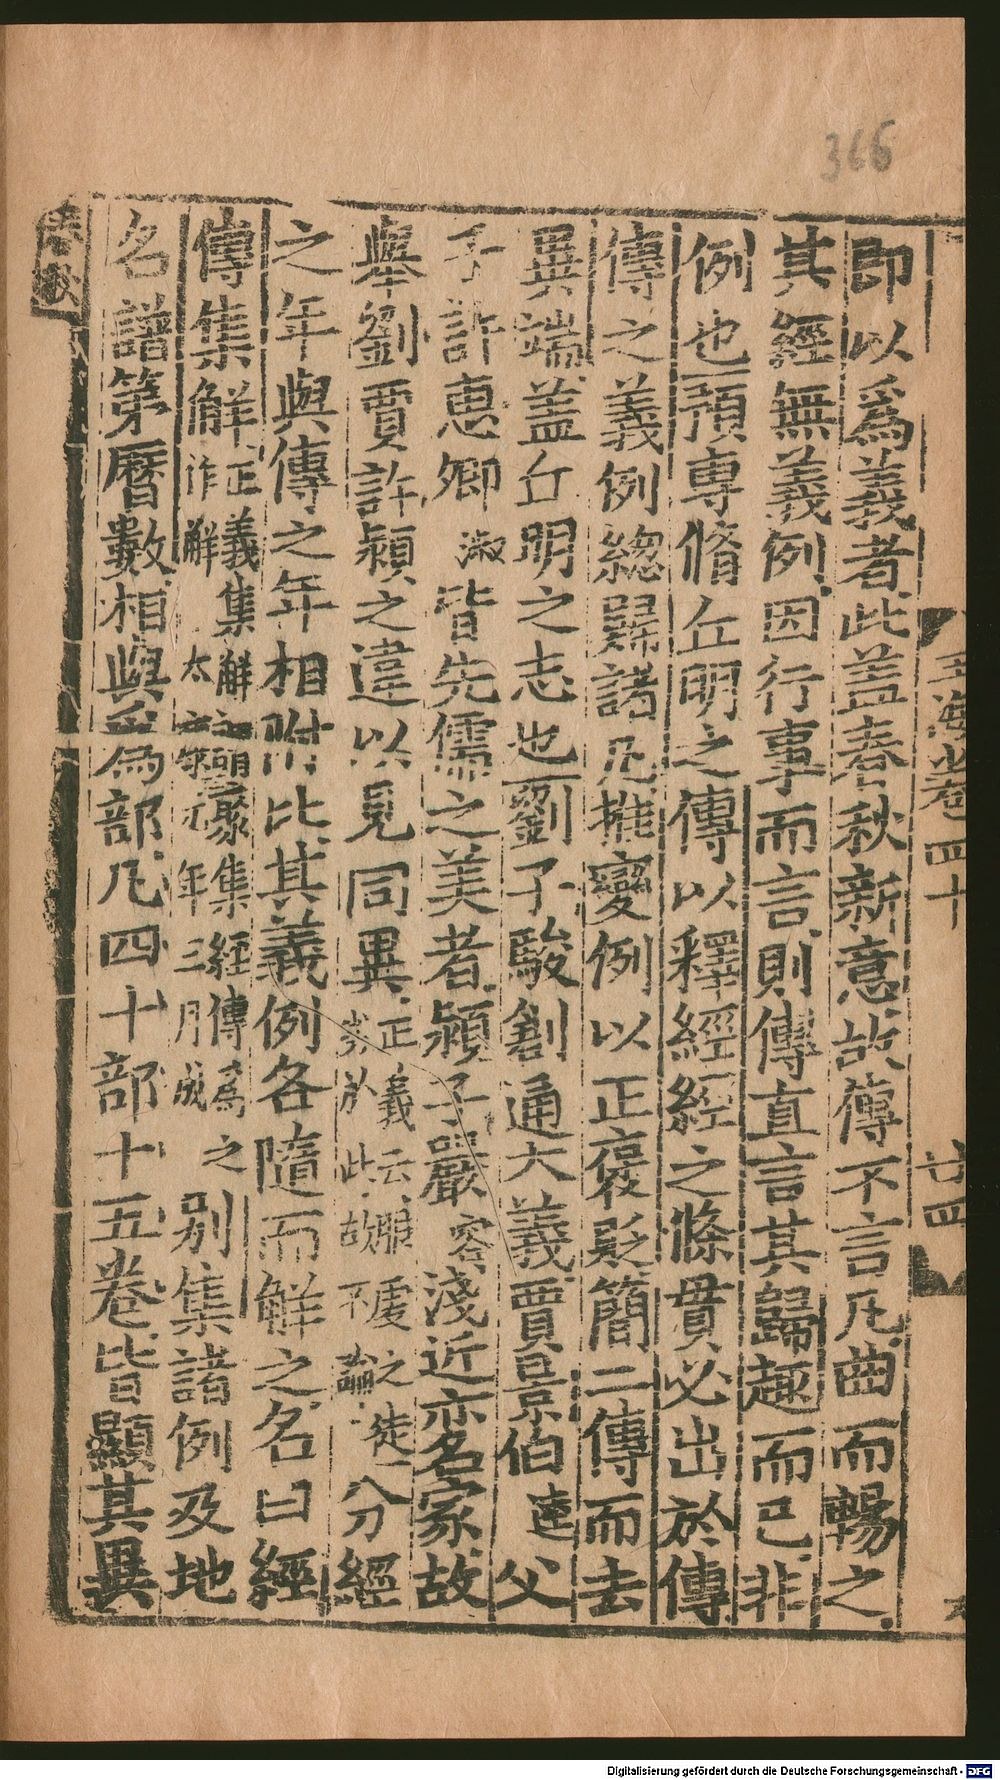 366
玉海卷四十
廿四
即以爲義者此蓋春秋新意故傳不言凡曲而暢之
其經無義例因行事而言則傳直言其歸趣而已非
例也預專脩丘明之傳以釋經經之條貫必出於傳
傳之義例緫歸諸凡推變例以正褒貶簡二傳而去
異端蓋丘明之志也劉子駿創通大義賈景伯逵父
子許惠卿淑皆先儒之美者潁子嚴容淺近亦名家故
舉劉賈許潁之違以見同異正義云服虔之徒劣於此故不論分經
之年與傳之年相附比其義例各隨而解之名曰經
傳集解正義集解謂聚集經傳爲之作解太康元年三月成別集諸例及地
名譜第曆數相與爲部凡四十部十五卷皆顯其異
春秋
Digitalisierung gefördert durch die Deutsche Forschungsgemeinschaft - DFG